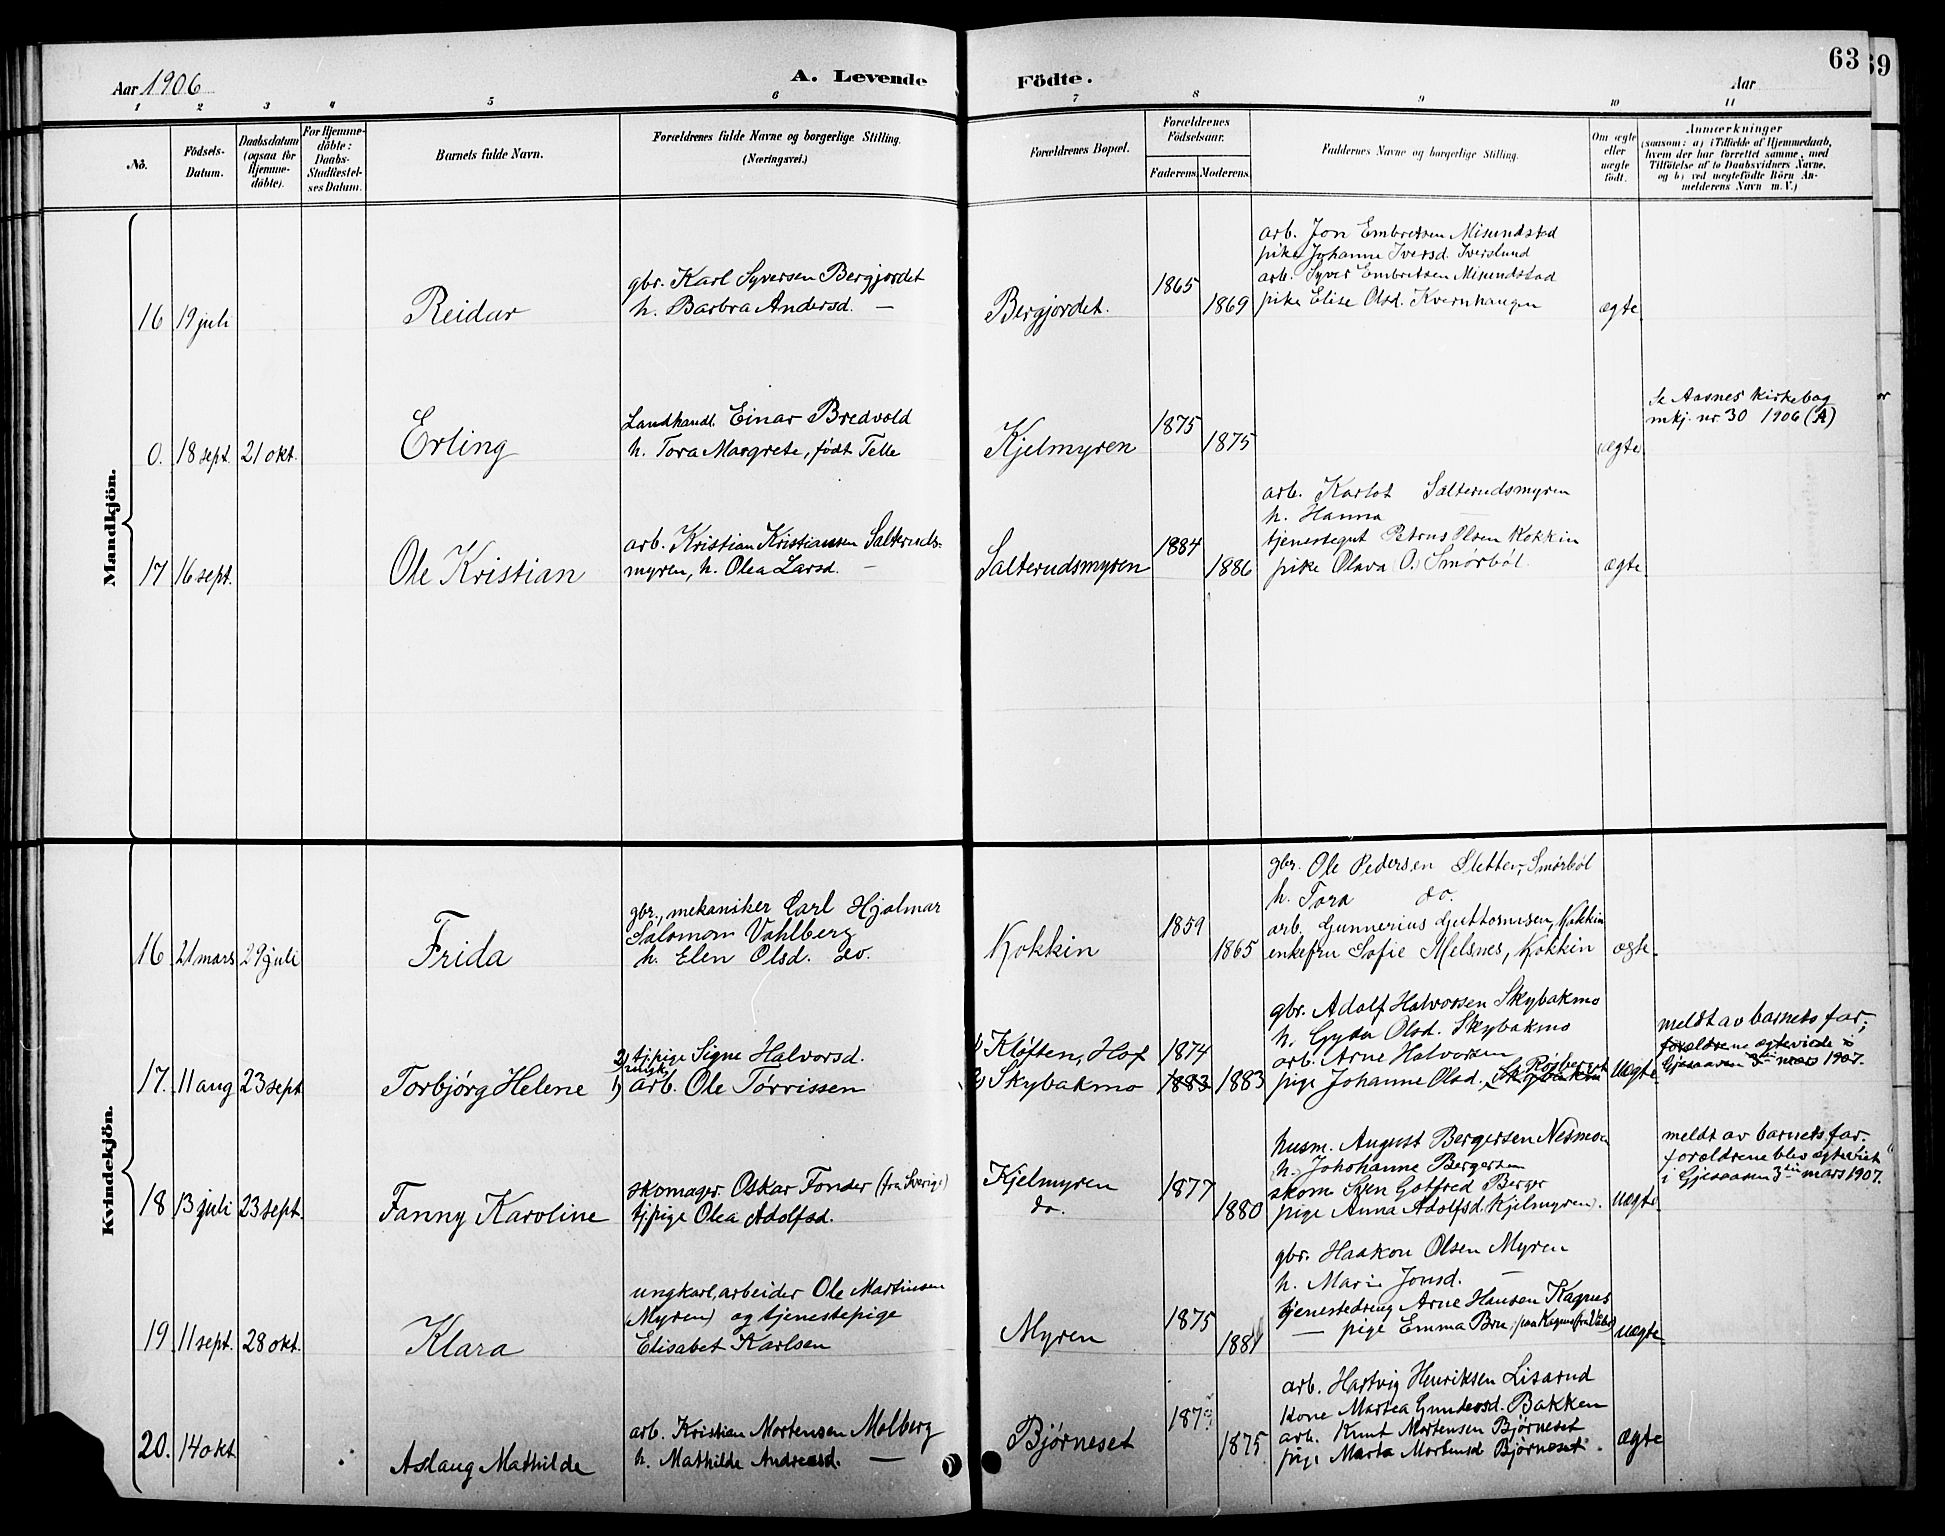 Aar 1906
A. Levende
Födte.
Aar
63
39
1 2 3 4 5 6 7 8 9 10 11
Nô.
Födsels-
Datum.
Daabsdatum
(ogsaa för
Hjemme-
döbte).
For Hjemme-
döbte:
Daabs-
Stadfæstel-
ses Datum.
Barnets fulde Navn.
Forældrenes fulde Navne og borgerlige Stilling.
(Næringsvei.)
Forældrenes Bopæl.
Forældrenes
Födselsaar.
Faderens. Moderens.
Faddernes Navne og borgerlige Stilling.
Om ægte
eller
uægte
födt.
Anmærkninger
(saasom: a) i Tilfælde af Hjemmedaab,
hvem der har forrettet samme, med
Tilföielse af to Daabsvidners Navne,
og b) ved uægtefödte Börn An-
melderens Navn m. V.)
Mandkjön.
16 19 juli
Reidar
gbr. Karl Syversen Bergjordet
h. Barbra Andersd. —
Bergjordet.
1865
1869
arb. Jon Embretsen Misundstad
pike Johanne Iversd. Iverslund
arb. Syver Embretsen Misundstad
pike Elise Olsd. Kvernhaugen
ægte
0. 18 sept. 21 okt.
Erling
Landhandl. Einar Bredvold
h. Tora Margrete, født Telle
Kjelmyren
1875
1875
ægte
Se Aasnes kirkebog
mkj. nr 30 1906 (A)
17 16 sept.
Ole Kristian
arb. Kristian Kristiansen Salteruds-
myren, h. Olea Larsd. —
Salterudsmyren
1884
1886
arb. Karlot Salterudsmyren
h. Hanna —
tjenestegut Petrus Olsen Kokkin
pike Olava (O.) Smørbøl.
ægte
Kvindekjön.
16 21 mars 29 juli
Frida
gbr., mekaniker Carl Hjalmar
Salomon Vahlberg
h. Elen Olsd. do.
Kokkin
1859
1865
gbr. Ole Pedersen Sletten, Smørbøl
h. Tora do.
arb. Gunnerius Guttormsen, Kokkin
enkefru Sofie Melsnes, Kokkin
ægte.
17. 11 aug 23 sept
Torbjørg Helene
2) tj.pige Signe Halvorsd.
ungk.
1) arb. Ole Tørrissen
1) Kløften, Hof
2) Skybakmo
1874
1883
1883
gbr. Adolf Halvorsen Skybakmo
h. Gyda Olsd. Skybakmo
arb. Arne Halvorsen
pige Johanne Olsd. Skybakmo
uægte
meldt av barnets far;
forældrene egteviede i
Gjesaasen 3die mars 1907.
18 13 juli 23 sept.
Fanny Karoline
skomager Oskar Fonder (fra Sverige)
tj.pige Olea Adolfsd.
Kjelmyren
do.
1877
1880
husm. August Bergersen Nesmoen
h. Johohanne Bergersen
skom Sven Gotfred Berger
pige Anna Adolfsd. Kjelmyren).
uægte
meldt av barnets far.
forældrene blev egteviet
i Gjesaasen 3die mars 1907.
19 11 sept. 28 okt.
Klara
ungkarl, arbeider Ole Martinsen
(Myren) og tjenestepige
Elisabet Karlsen
Myren
1875
1881
gbr. Haakon Olsen Myren
h. Marie Jonsd. —
tjenestedreng Arne Hansen Kagnes
— pige Emma Bru,
uægte
20. 14 okt
Aslaug Mathilde
arb. Kristian Mortensen Molberg
h. Mathilde Andreasd. —
Bjørneset
1875
arb. Hartvig Henriksen Lisarud
kone Martea Gundersd. Bakken
arb. Knut Mortensen Bjørneset
pige Marta Mortensd Bjørneset.
ægte